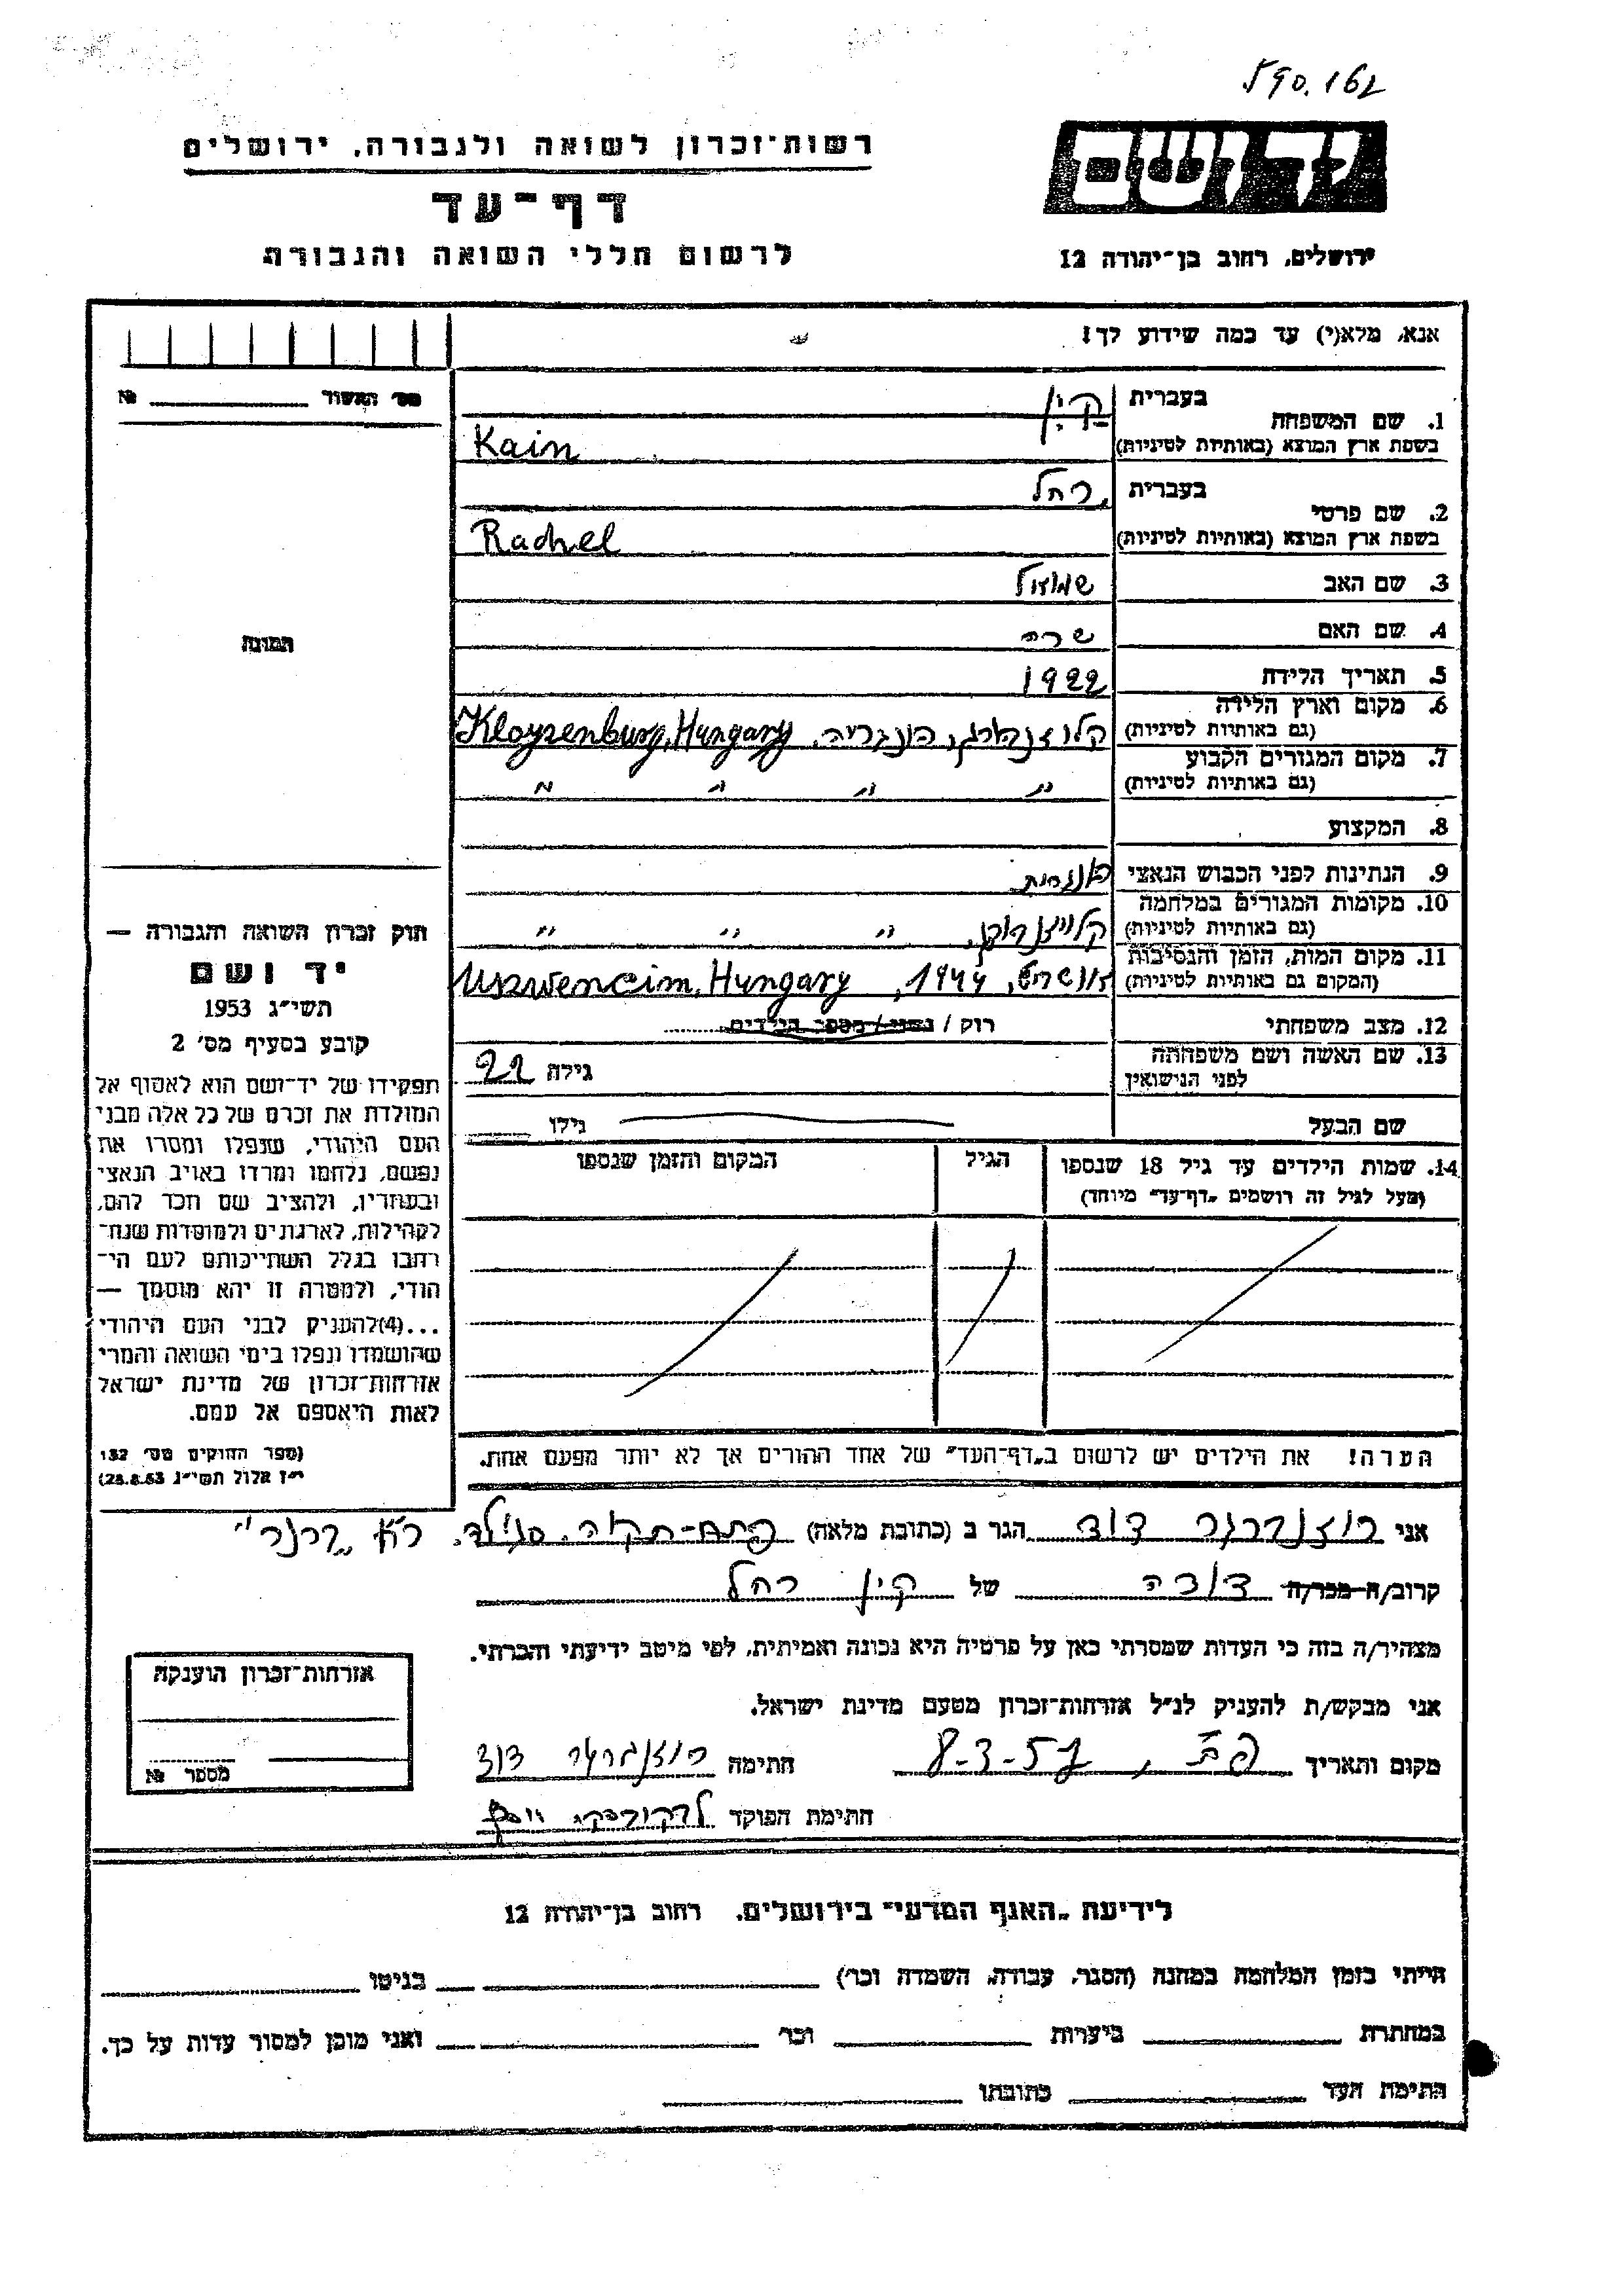 590.162
ידושם
רשות־זכרון לשואה ולגבורה, ירושלים
דף־עד
לרשום חללי השואה והגבורה
ירושלים, רחוב בן־יהודה 12
אנא, מלא(י) עד כמה שידוע לך!
מס׳ האשור №
1. שם המשפחה
בעברית קין
בשפת ארץ המוצא (באותיות לטיניות) Kain
2. שם פרטי
בעברית רחל
בשפת ארץ המוצא (באותיות לטיניות) Rachel
3. שם האב שמואל
4. שם האם שרה
5. תאריך הלידה 1922
6. מקום וארץ הלידה
(גם באותיות לטיניות) קלויזנבורג, הונגריה, Kloyzenburg, Hungary
7. מקום המגורים הקבוע
(גם באותיות לטיניות) " " " "
8. המקצוע
9. הנתינות לפני הכבוש הנאצי
10. מקומות המגורים במלחמה
(גם באותיות לטיניות) קלויזנבורג, " " "
11. מקום המות, הזמן והנסיבות
(המקום גם באותיות לטיניות) 1944, Hungary
12. מצב משפחתי רוק / נשוי / מספר הילדים
13. שם האשה ושם משפחתה
לפני הנישואין גילה 22
שם הבעל גילו
14. שמות הילדים עד גיל 18 שנספו הגיל המקום והזמן שנספו
(מעל לגיל זה רושמים „דף־עד" מיוחד)
הערה! את הילדים יש לרשום ב„דף־העד" של אחד ההורים אך לא יותר מפעם אחת.
התמונה
חוק זכרון השואה והגבורה —
יד ושם
תשי״ג 1953
קובע בסעיף מס׳ 2
תפקידו של יד־ושם הוא לאסוף אל
המולדת את זכרם של כל אלה מבני
העם היהודי, שנפלו ומסרו את
נפשם, נלחמו ומרדו באויב הנאצי
ובעוזריו, ולהציב שם וזכר להם,
לקהילות, לארגונים ולמוסדות שנח־
רבו בגלל השתייכותם לעם הי־
הודי, ולמטרה זו יהא מוסמך —
...(4)להעניק לבני העם היהודי
שהושמדו ונפלו בימי השואה והמרי
אזרחות־זכרון של מדינת ישראל
לאות היאספם אל עמם.
(ספר החוקים מס׳ 132
י״ז אלול תשי״ג 28.8.53)
אני רוזנברגר דוד הגר ב (כתובת מלאה) פתח-תקוה,
קרוב/ה מכר/ה דודה של קין רחל
מצהיר/ה בזה כי העדות שמסרתי כאן על פרטיה היא נכונה ואמיתית, לפי מיטב ידיעתי והכרתי.
אני מבקש/ת להעניק לנ״ל אזרחות־זכרון מטעם מדינת ישראל.
מקום ותאריך פ״ת, 8-3-57 חתימה רוזנברגר דוד
חתימת הפוקד
אזרחות־זכרון הוענקה
מספר №
לידיעת „האגף המדעי" בירושלים, רחוב בן־יהודה 12
הייתי בזמן המלחמה במחנה (הסגר, עבודה, השמדה וכו׳) בגיטו
במחתרת ביערות וכו׳ ואני מוכן למסור עדות על כך.
חתימת העד כתובתו